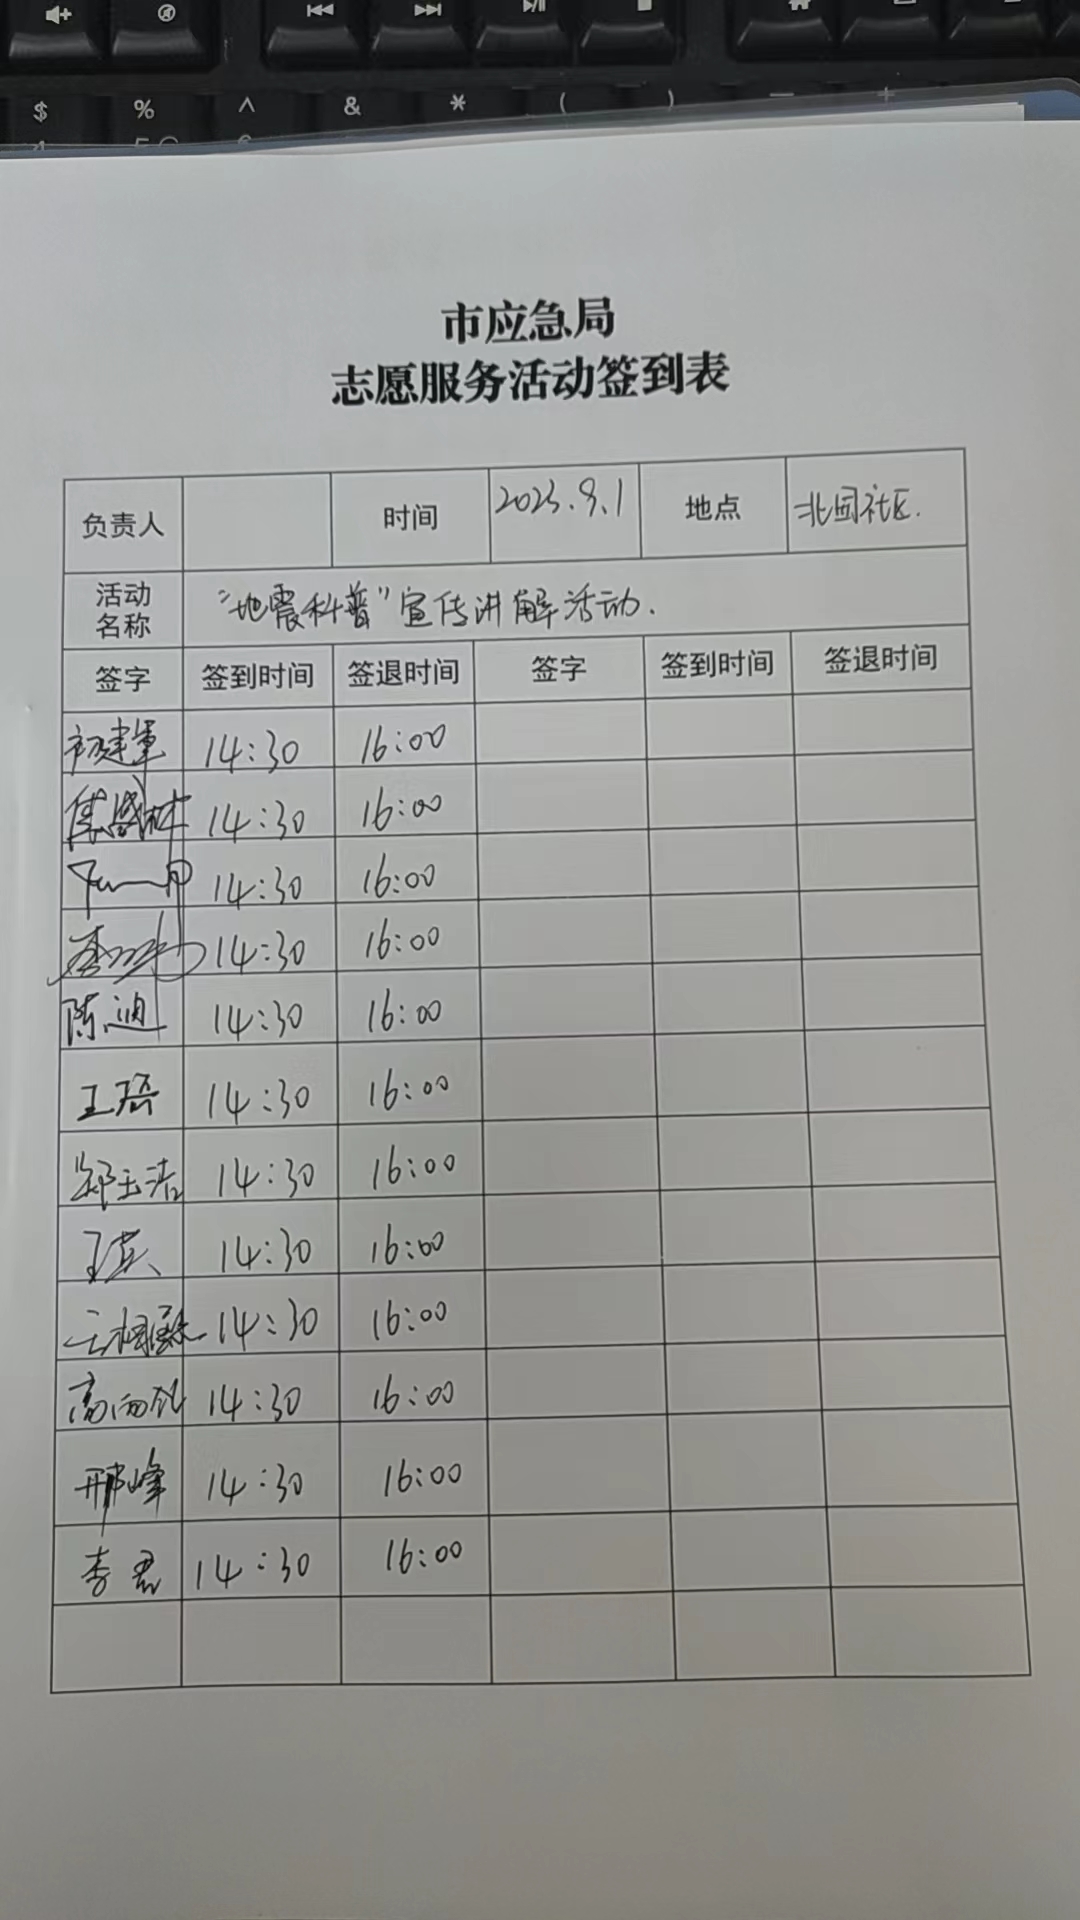 $ % ^ & * ( ) — +
市应急局
志愿服务活动签到表
负责人 时间 2023.9.1 地点 北园社区.
活动名称 "地震科普"宣传讲解活动.
签字 签到时间 签退时间 签字 签到时间 签退时间
初建军 14:30 16:00
14:30 16:00
14:30 16:00
14:30 16:00
陈迪 14:30 16:00
王 14:30 16:00
郑玉洁 14:30 16:00
王英 14:30 16:00
14:30 16:00
高 14:30 16:00
邢峰 14:30 16:00
李君 14:30 16:00